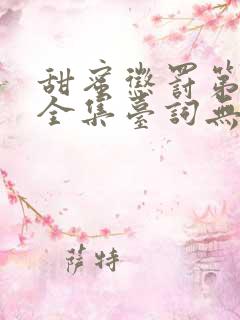 甜蜜懲罰第
全集臺詞無
薩特